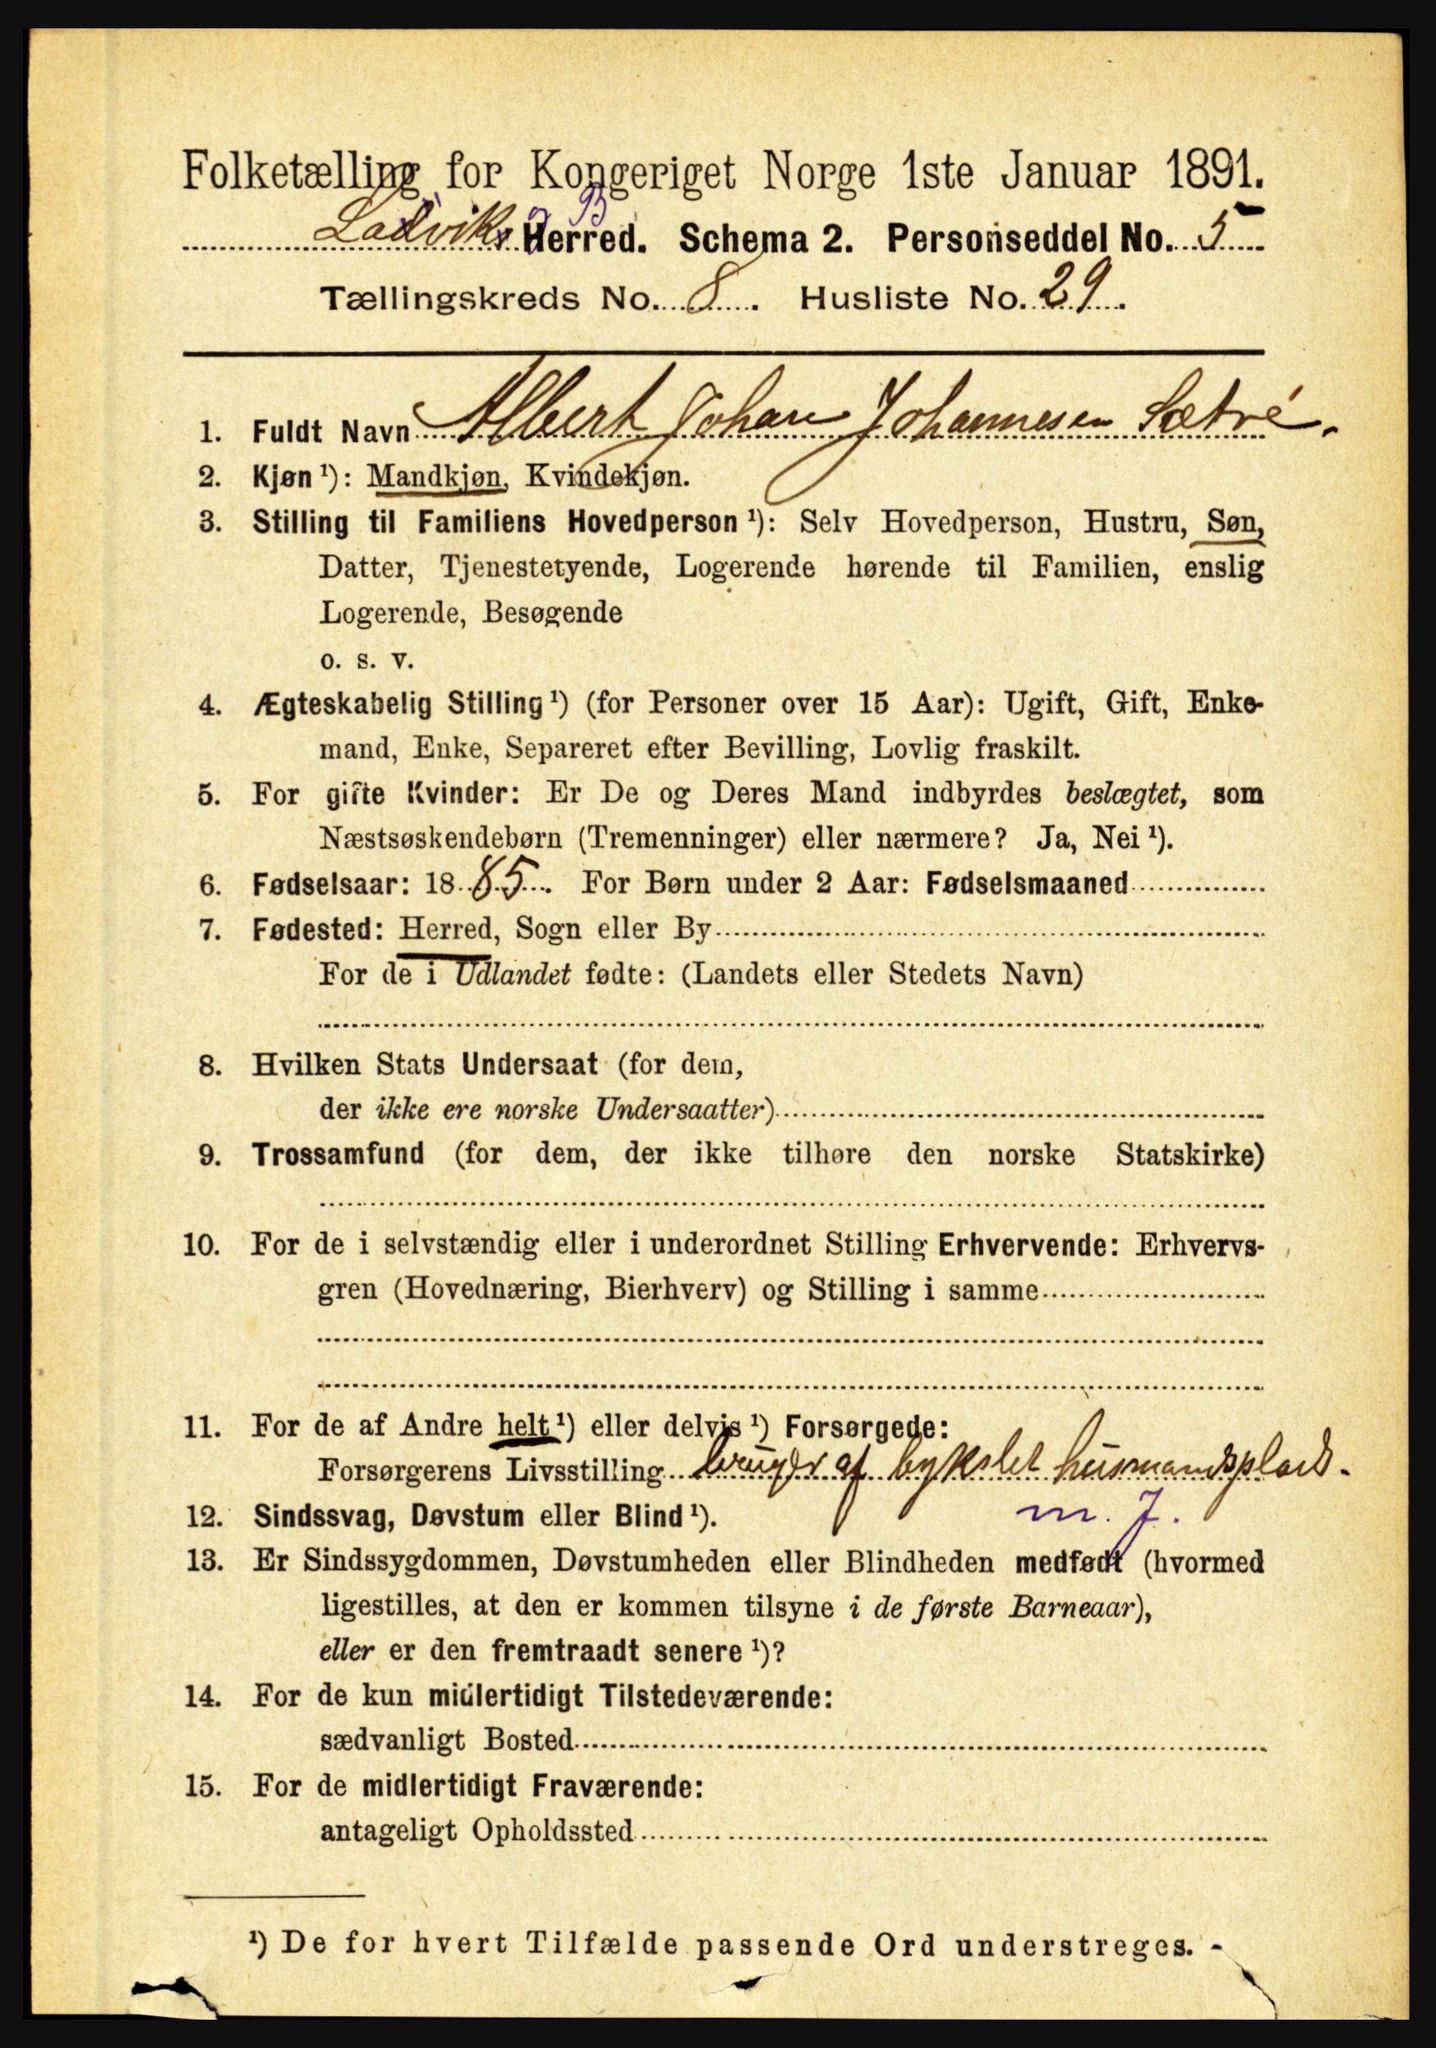 Folketælling for Kongeriget Norge 1ste Januar 1891.
Ladviks Herred. Schema 2. Personseddel No. 5
Tællingskreds No. 8. Husliste No. 29.
1. Fuldt Navn Albert Johan Johannesen Sætre.
2. Kjøn¹): Mandkjøn, Kvindekjøn.
3. Stilling til Familiens Hovedperson¹): Selv Hovedperson, Hustru, Søn,
Datter, Tjenestetyende, Logerende hørende til Familien, enslig
Logerende, Besøgende
o. s. v.
4. Ægteskabelig Stilling¹) (for Personer over 15 Aar): Ugift, Gift, Enke-
mand, Enke, Separeret efter Bevilling, Lovlig fraskilt.
5. For gifte Kvinder: Er De og Deres Mand indbyrdes beslægtet, som
Næstsøskendebørn (Tremenninger) eller nærmere? Ja, Nei¹).
6. Fødselsaar: 1885. For Børn under 2 Aar: Fødselsmaaned
7. Fødested: Herred, Sogn eller By
For de i Udlandet fødte: (Landets eller Stedets Navn)
8. Hvilken Stats Undersaat (for dem,
der ikke ere norske Undersaatter)
9. Trossamfund (for dem, der ikke tilhøre den norske Statskirke)
10. For de i selvstændig eller i underordnet Stilling Erhvervende: Erhvervs-
gren (Hovednæring, Bierhverv) og Stilling i samme
11. For de af Andre helt¹) eller delvis¹) Forsørgede:
Forsørgerens Livsstilling bruger af bykslet husmandsplads.
m. J.
12. Sindssvag, Døvstum eller Blind¹).
13. Er Sindssygdommen, Døvstumheden eller Blindheden medfødt (hvormed
ligestilles, at den er kommen tilsyne i de første Barneaar),
eller er den fremtraadt senere¹)?
14. For de kun midlertidigt Tilstedeværende:
sædvanligt Bosted
15. For de midlertidigt Fraværende:
antageligt Opholdssted
¹) De for hvert Tilfælde passende Ord understreges.